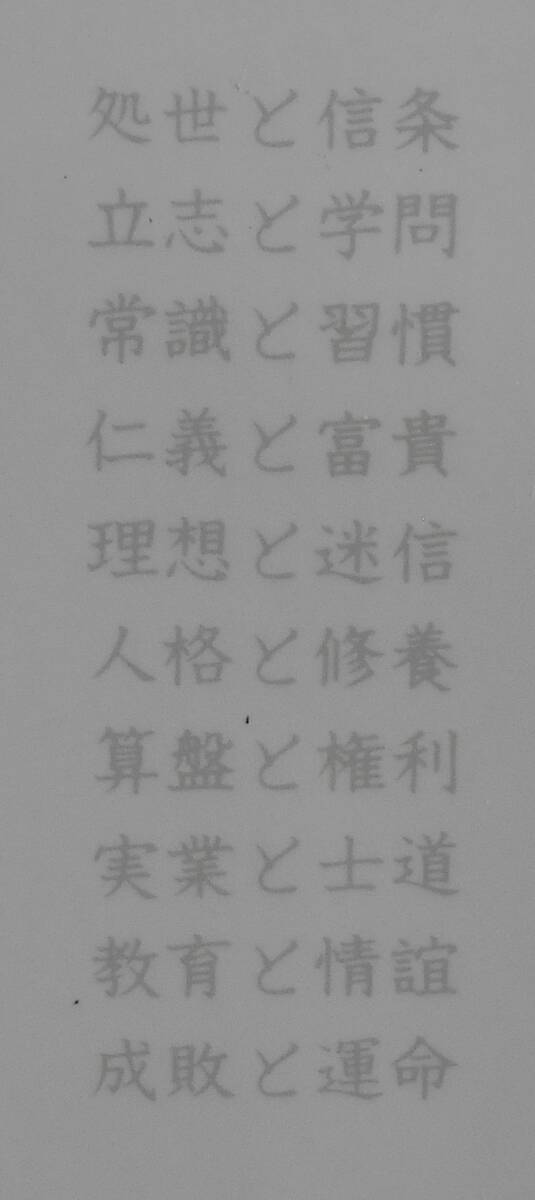 処世と信条
立志と学問
常識と習慣
仁義と富貴
理想と迷信
人格と修養
算盤と権利
実業と士道
教育と情誼
成敗と運命